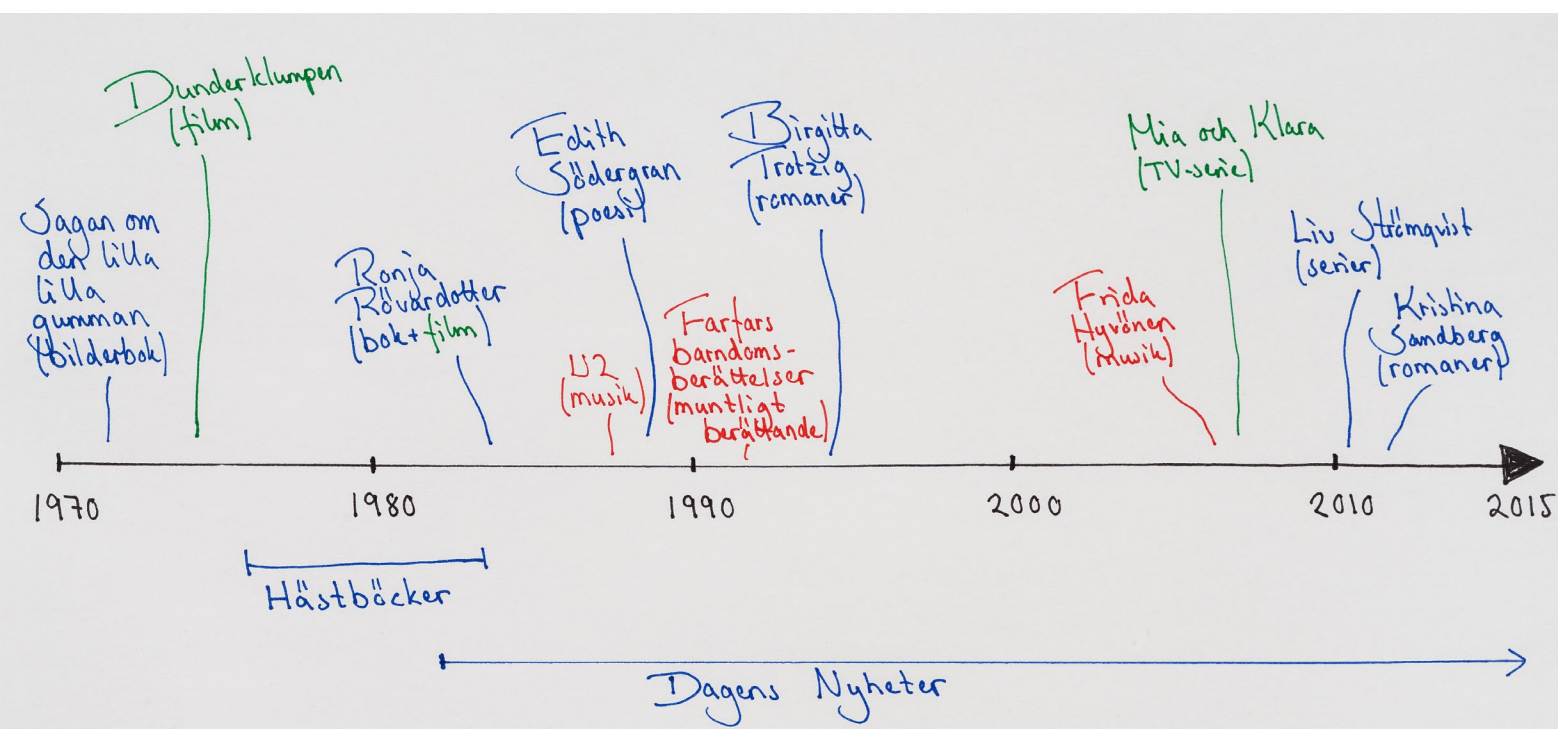 Dunderklumpen
(film)
Sagan om
den lilla
lilla
gumman
(bilderbok)
Ronja
Rövardotter
(bok+film)
Edith
Södergran
(poesi)
U2
(musik)
Farfars
barndoms-
berättelser
(muntligt
berättande)
Birgitta
Trotzig
(romaner)
Frida
Hyvönen
(musik)
Mia och Klara
(TV-serie)
Liv Strömqvist
(serier)
Kristina
Sandberg
(romaner)
1970 1980 1990 2000 2010 2015
Hästböcker
Dagens Nyheter